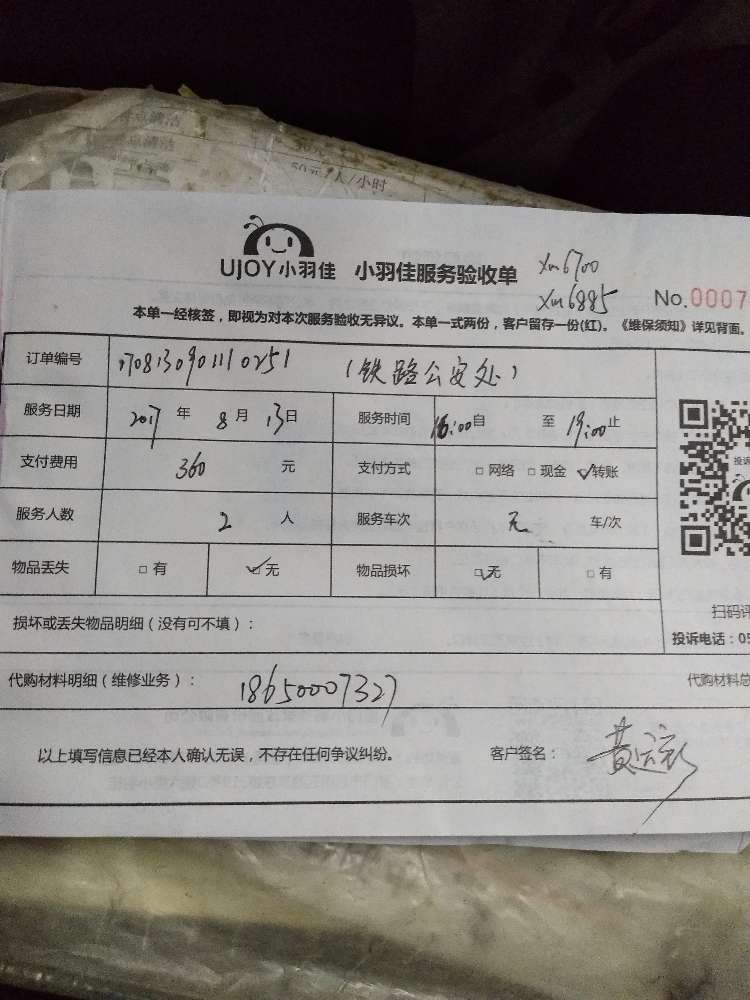 点清洁
50元/人/小时
UJOY小羽佳 小羽佳服务验收单 xm6700
xm6885
No.0007
本单一经核签，即视为对本次服务验收无异议。本单一式两份，客户留存一份(红)。《维保须知》详见背面。
订单编号 1708130901110251 （铁路公安处）
服务日期 2017 年 8 月 13 日 服务时间 16:00 自 至 19:00 止
支付费用 360 元 支付方式 □ 网络 □ 现金 ☑ 转账
服务人数 2 人 服务车次 无 车/次
物品丢失 □ 有 ☑ 无 物品损坏 ☑ 无 □ 有
损坏或丢失物品明细（没有可不填）：
扫码评
投诉电话：05
代购材料明细（维修业务）： 18650007327 代购材料总
以上填写信息已经本人确认无误，不存在任何争议纠纷。 客户签名：